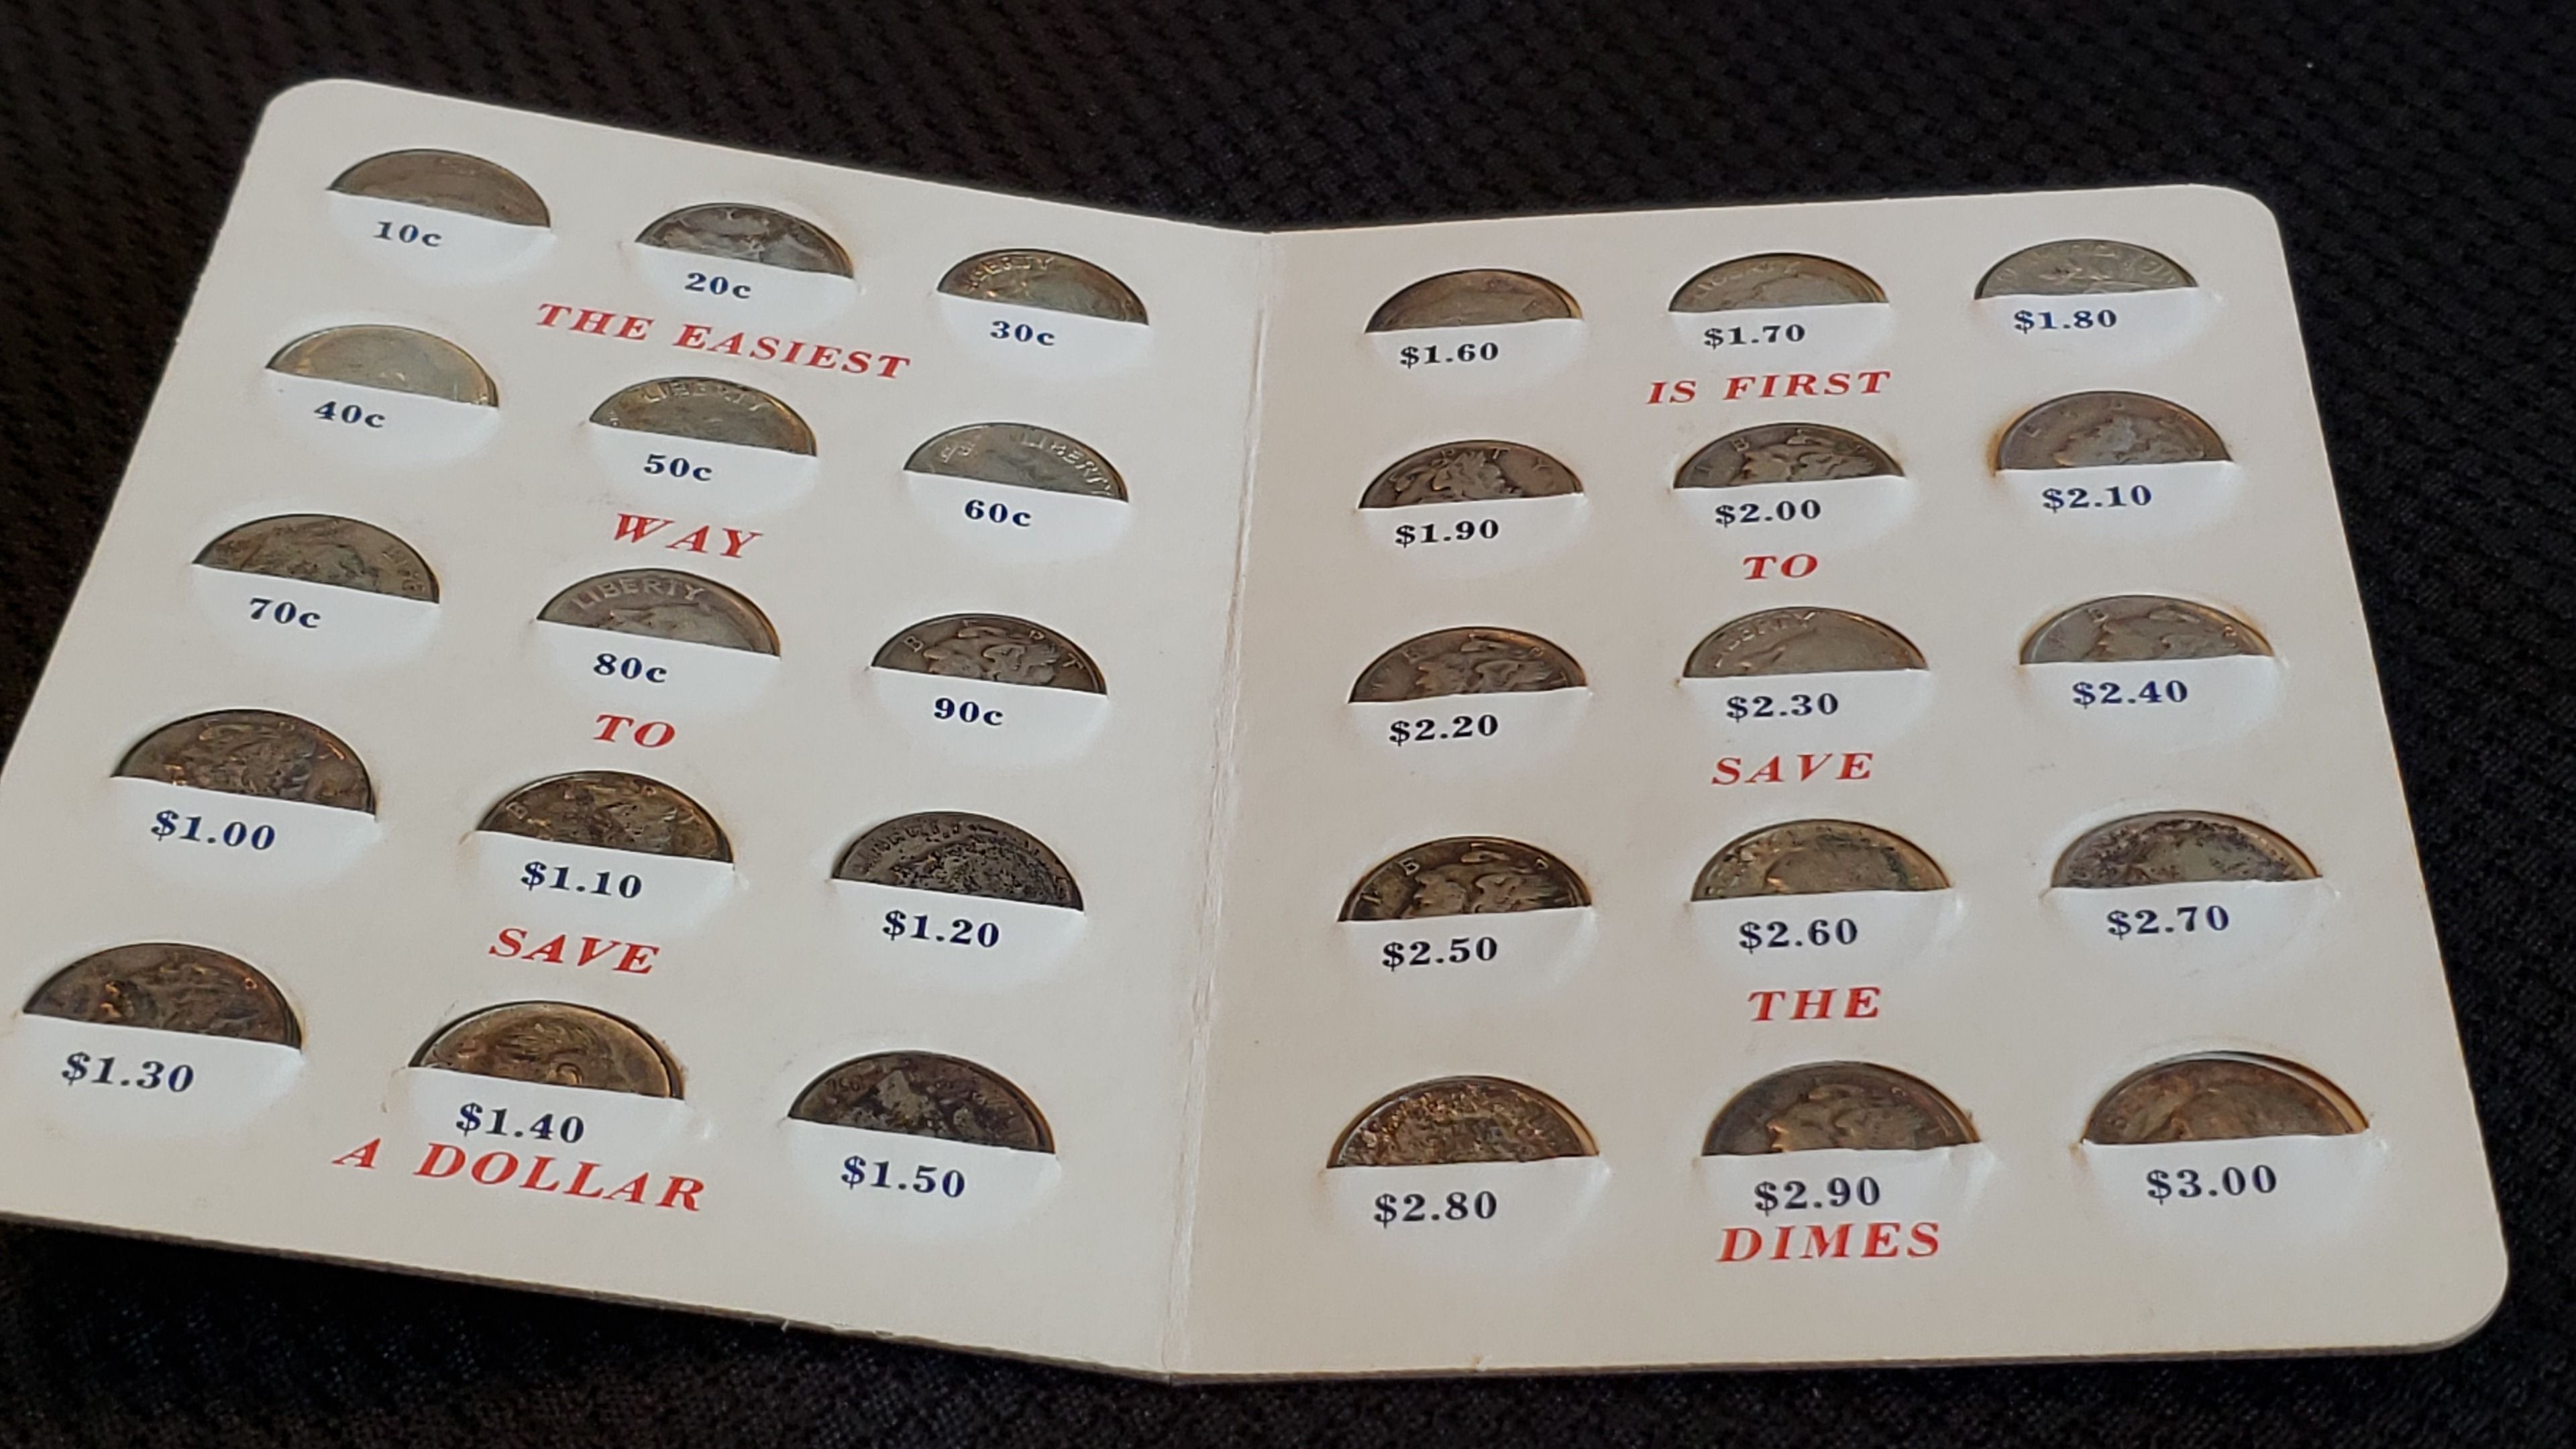 10c 20c 30c
THE EASIEST
40c 50c 60c
WAY
70c 80c 90c
TO
$1.00 $1.10 $1.20
SAVE
$1.30 $1.40 $1.50
A DOLLAR
$1.60 $1.70 $1.80
IS FIRST
$1.90 $2.00 $2.10
TO
$2.20 $2.30 $2.40
SAVE
$2.50 $2.60 $2.70
THE
$2.80 $2.90 $3.00
DIMES
LIBERTY
LIBERTY
LIBERTY